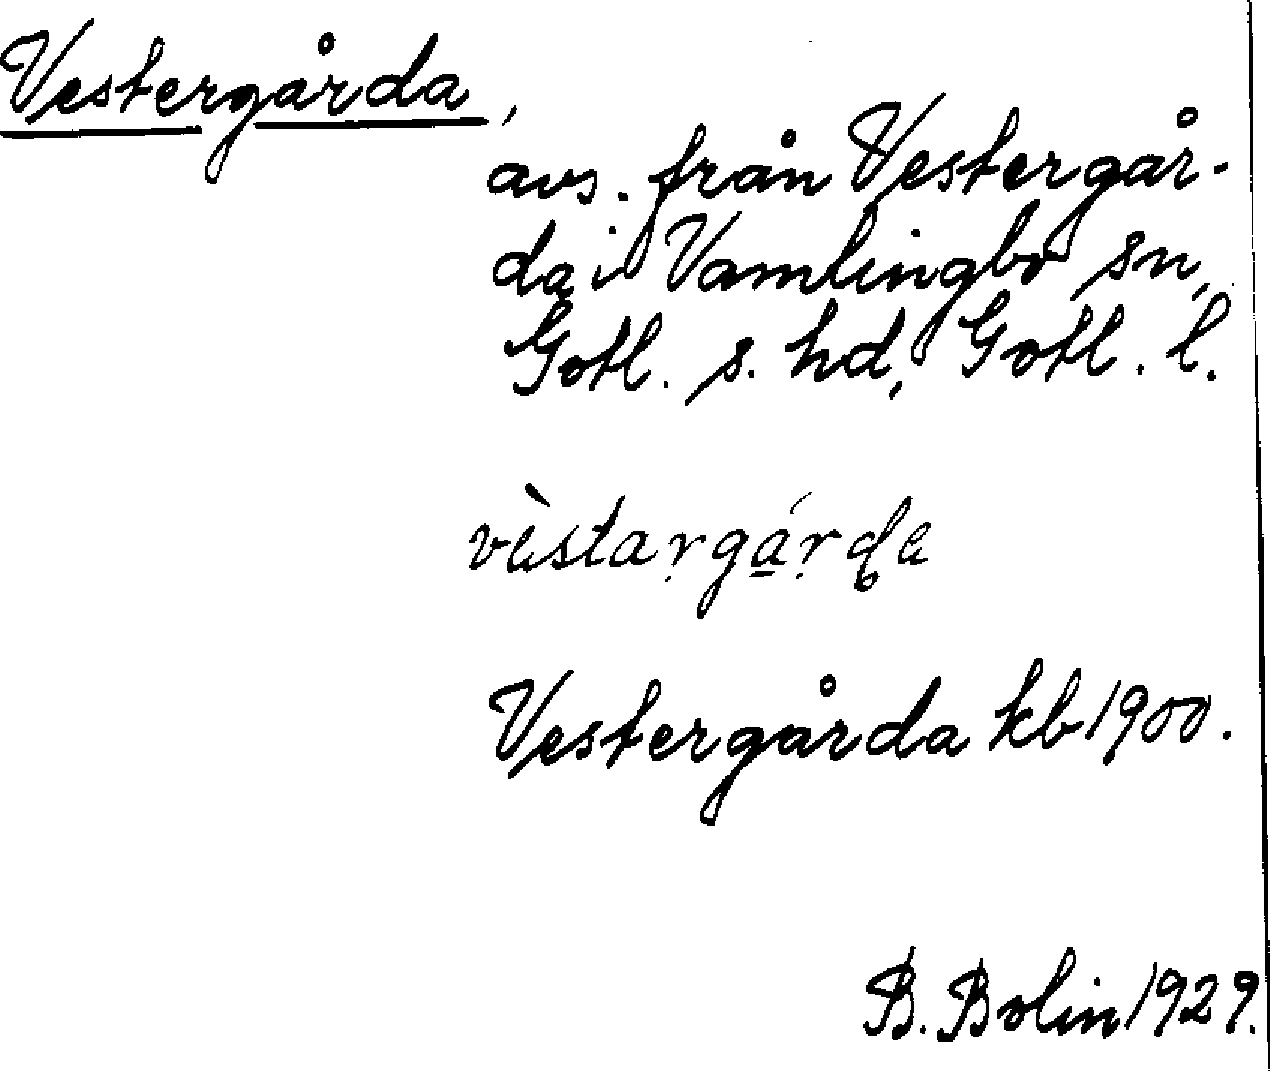 Vestergårda,
avs. från Vestergår-
da i Vamlingbo sn,
Gotl. s. hd, Gotl. l.
vèstaṛgá̱ṛđe
Vestergårda kb 1900.
B. Bolin 1929.